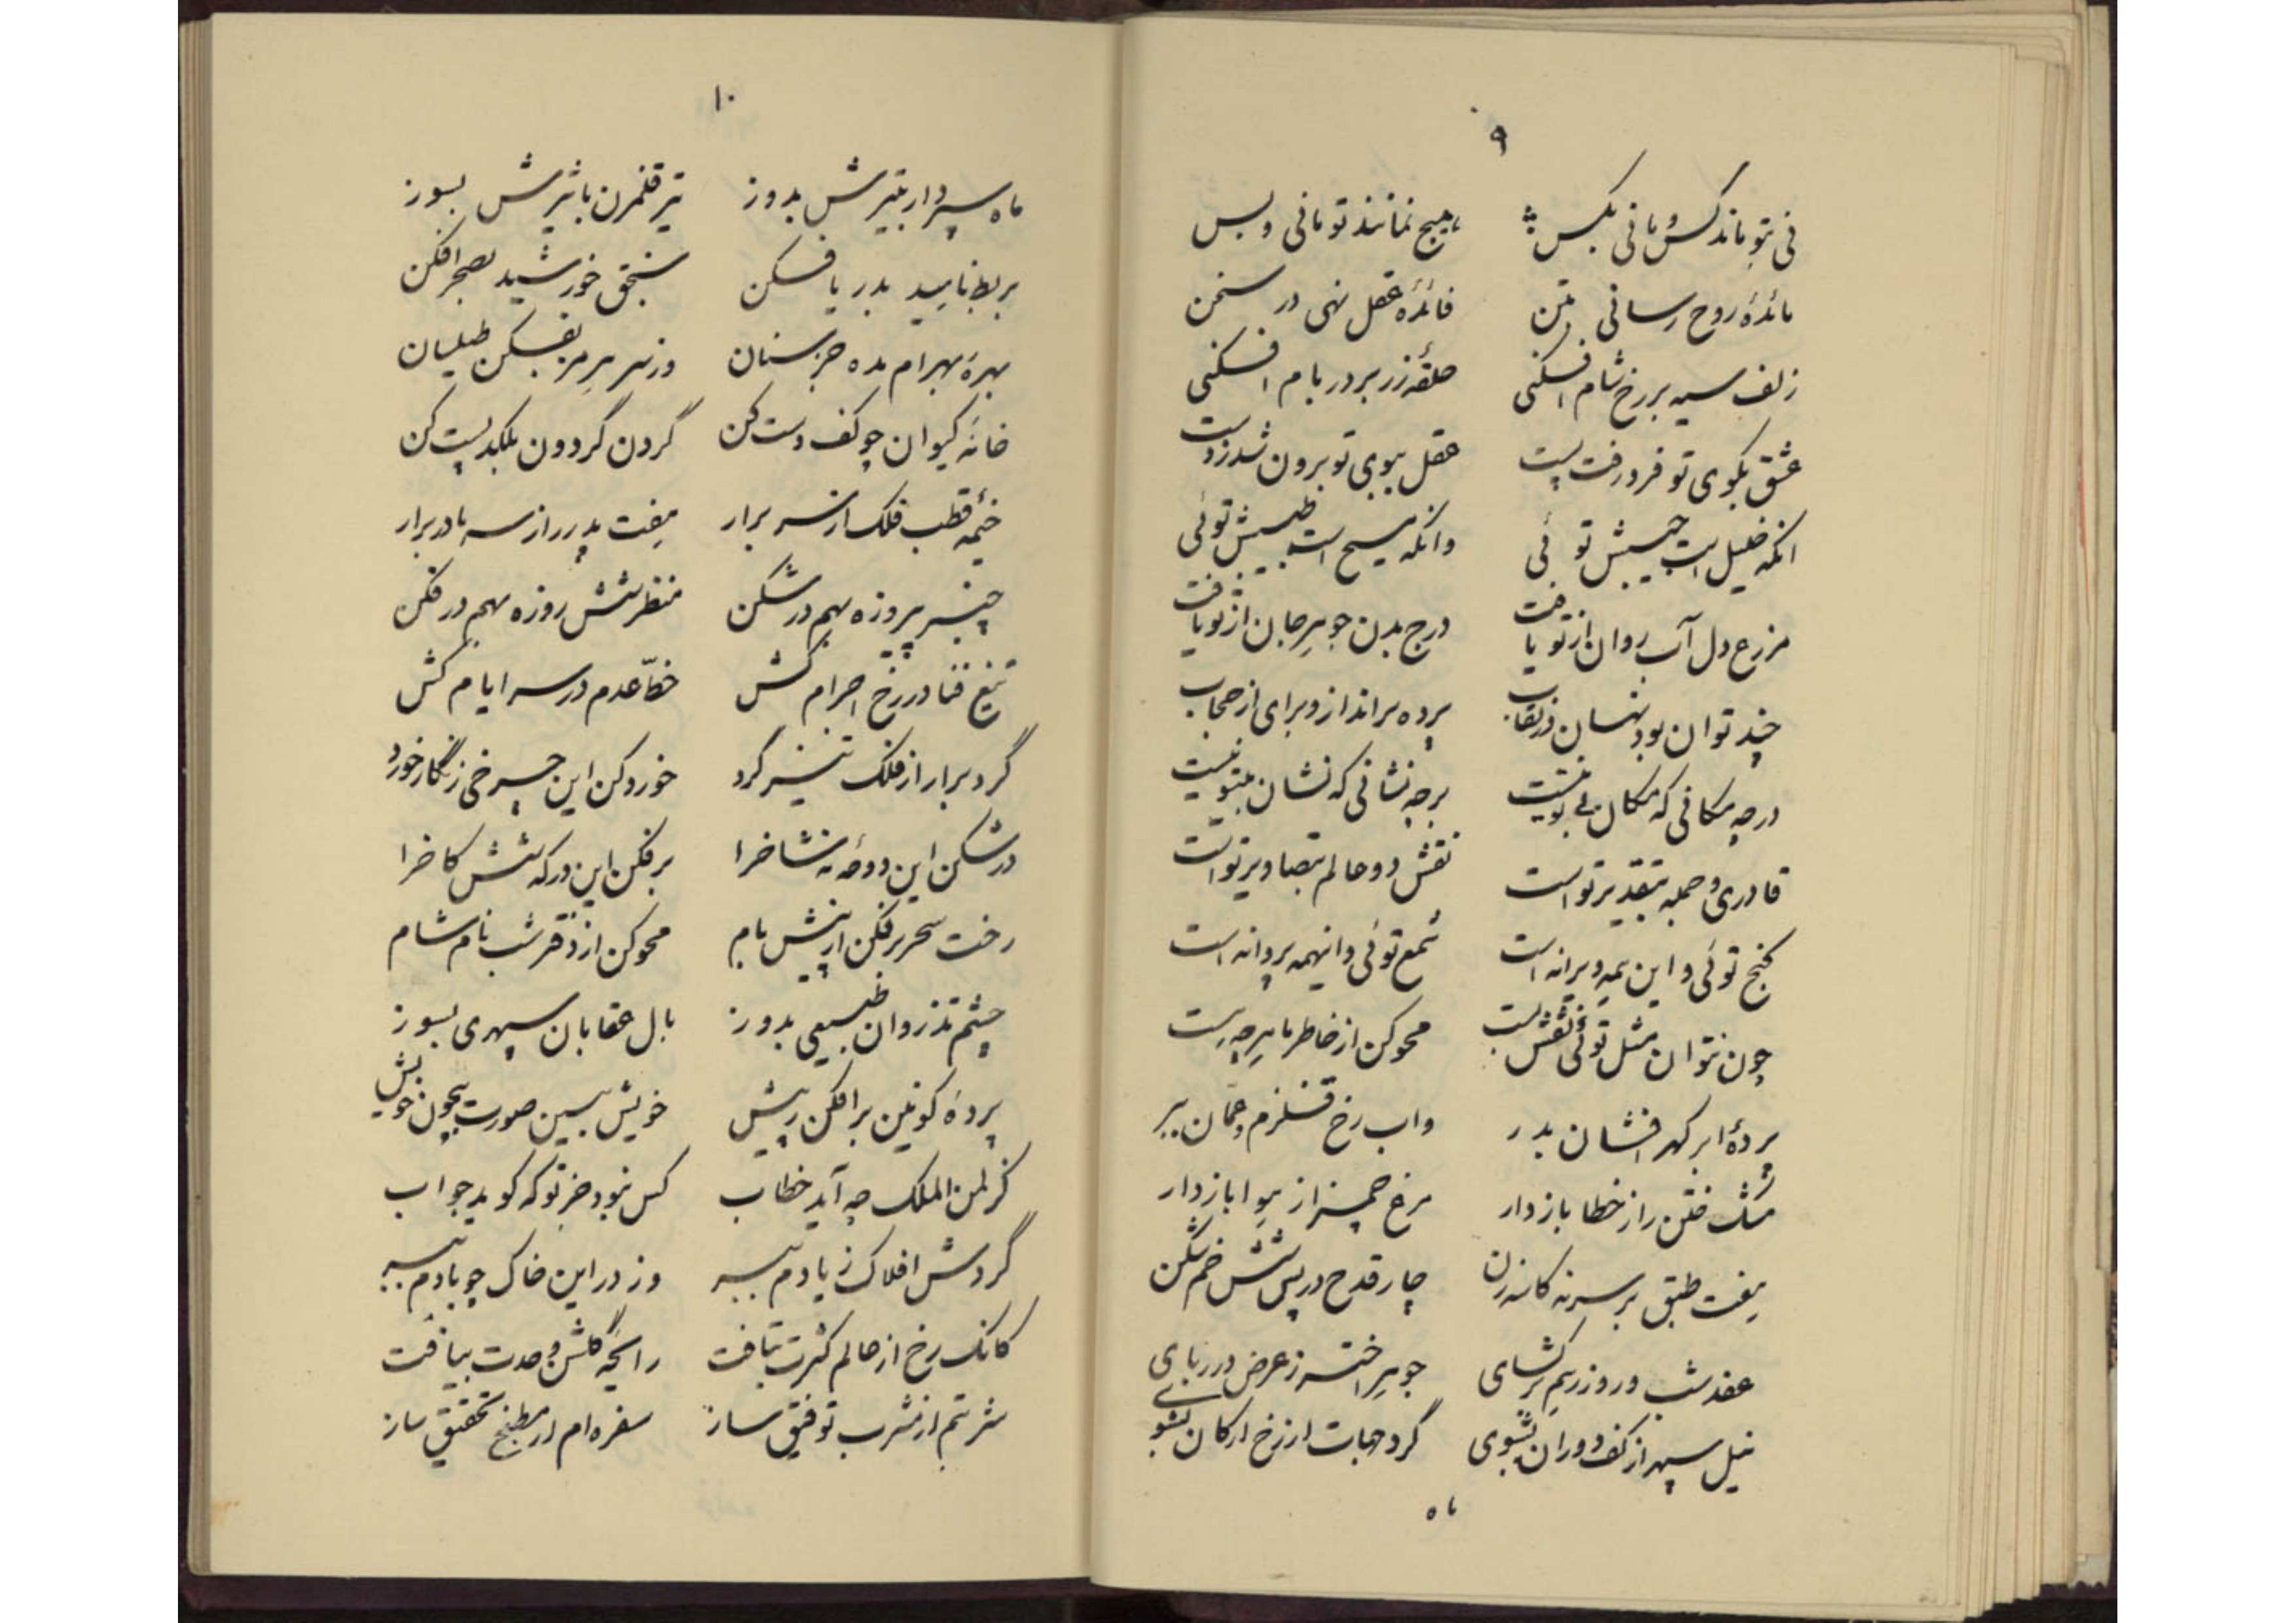 ۹
نی بتو ماند کس و مانی بکس هیچ نمانند تو مانی و بس
مائدهٔ روح رسانی بتن فائدهٔ عقل نهی در سخن
زلف سیه بر رخ شام افکنی حلقهٔ زر بر در بام افکنی
عشق بکوی تو فرو رفت پست عقل ببوی تو برون شد ز دست
انکه خلیل است حبیبش توئی وانکه مسیح است طبیبش توئی
مزرع دل آب روان از تو یافت درج بدن جوهر جان از تو یافت
چند توان بود نهان در نقاب پرده برانداز و برای از حجاب
در چه مکانی که مکان بی تو نیست بر چه نشانی که نشان بتو نیست
قادری و جمله بتقدیر تو است نقش دو عالم بتصاویر تو است
کنج توئی و این همه ویرانه است شمع توئی وانهمه پروانه است
چون نتوان مثل توئی نقش بست محو کن از خاطر ما هر چه هست
پردهٔ ابر کهر افشان بدر واب رخ قلزم و عمان ببر
مشک ختن را ز خطا باز دار مرغ چمن را ز هوا باز دار
هفت طبق بر سر نه کاسه زن چار قدح در پس شش خم شکن
عقد شب و روز ز هم برکشای جوهر اختر ز عرض در ربای
نیل سپهر از کف دوران بشوی گرد جهات از رخ ارکان بشوی
ماه
۱۰
ماه سپردار بتیرش بدوز تیر قلمزن باثیرش بسوز
بربط ناهید بدریا فکن سنجق خورشید بصحرا فکن
بهرهٔ بهرام مده جز سنان وز سر هرمز بفکن طیلسان
خانهٔ کیوان چو کف دست کن گردن گردون بلکد پست کن
خیمهٔ قطب فلک از سر برار هفت پدر را ز سه مادر برار
چنبر پیروزه بهم در شکن منظر شش روزه بهم در فکن
تیغ فنا در رخ اجرام کش خط عدم در سر ایام کش
گرد برار از فلک تیز گرد خورد کن این چرخی زنگار خورد
در شکن این دوحهٔ نه شاخرا بر فکن این درکه شش کاخرا
رخت سحر بر فکن از پیش بام محو کن از دفتر شب نام شام
چشم تذروان طبیعی بدوز بال عقابان سپهری بسوز
پردهٔ کونین برافکن ز پیش خویش ببین صورت بیچون خویش
کز لمن الملک چه آید خطاب کس نبود جز تو که گوید جواب
گردش افلاک ز یادم ببر وز در این خاک چو بادم ببر
کانک رخ از عالم کثرت بتافت رایحهٔ گلشن وحدت بیافت
شربتم از مشرب توفیق ساز سفره ام از مطبخ تحقیق ساز